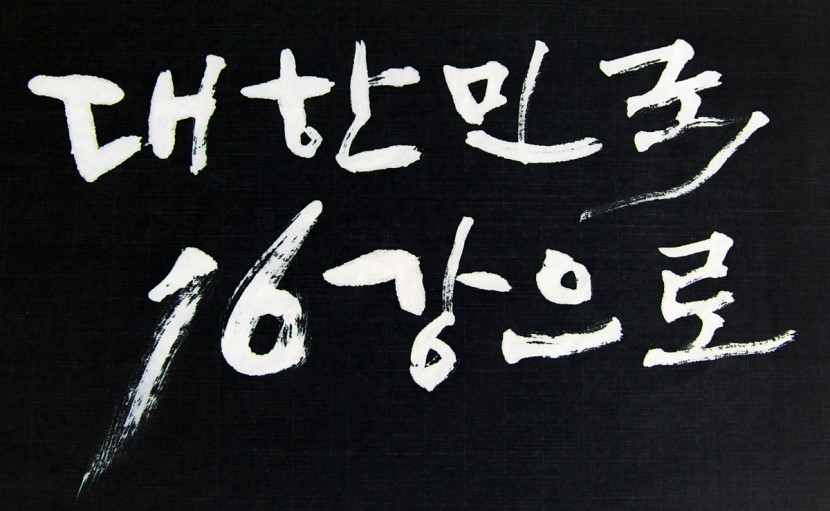 대한민국
16강으로